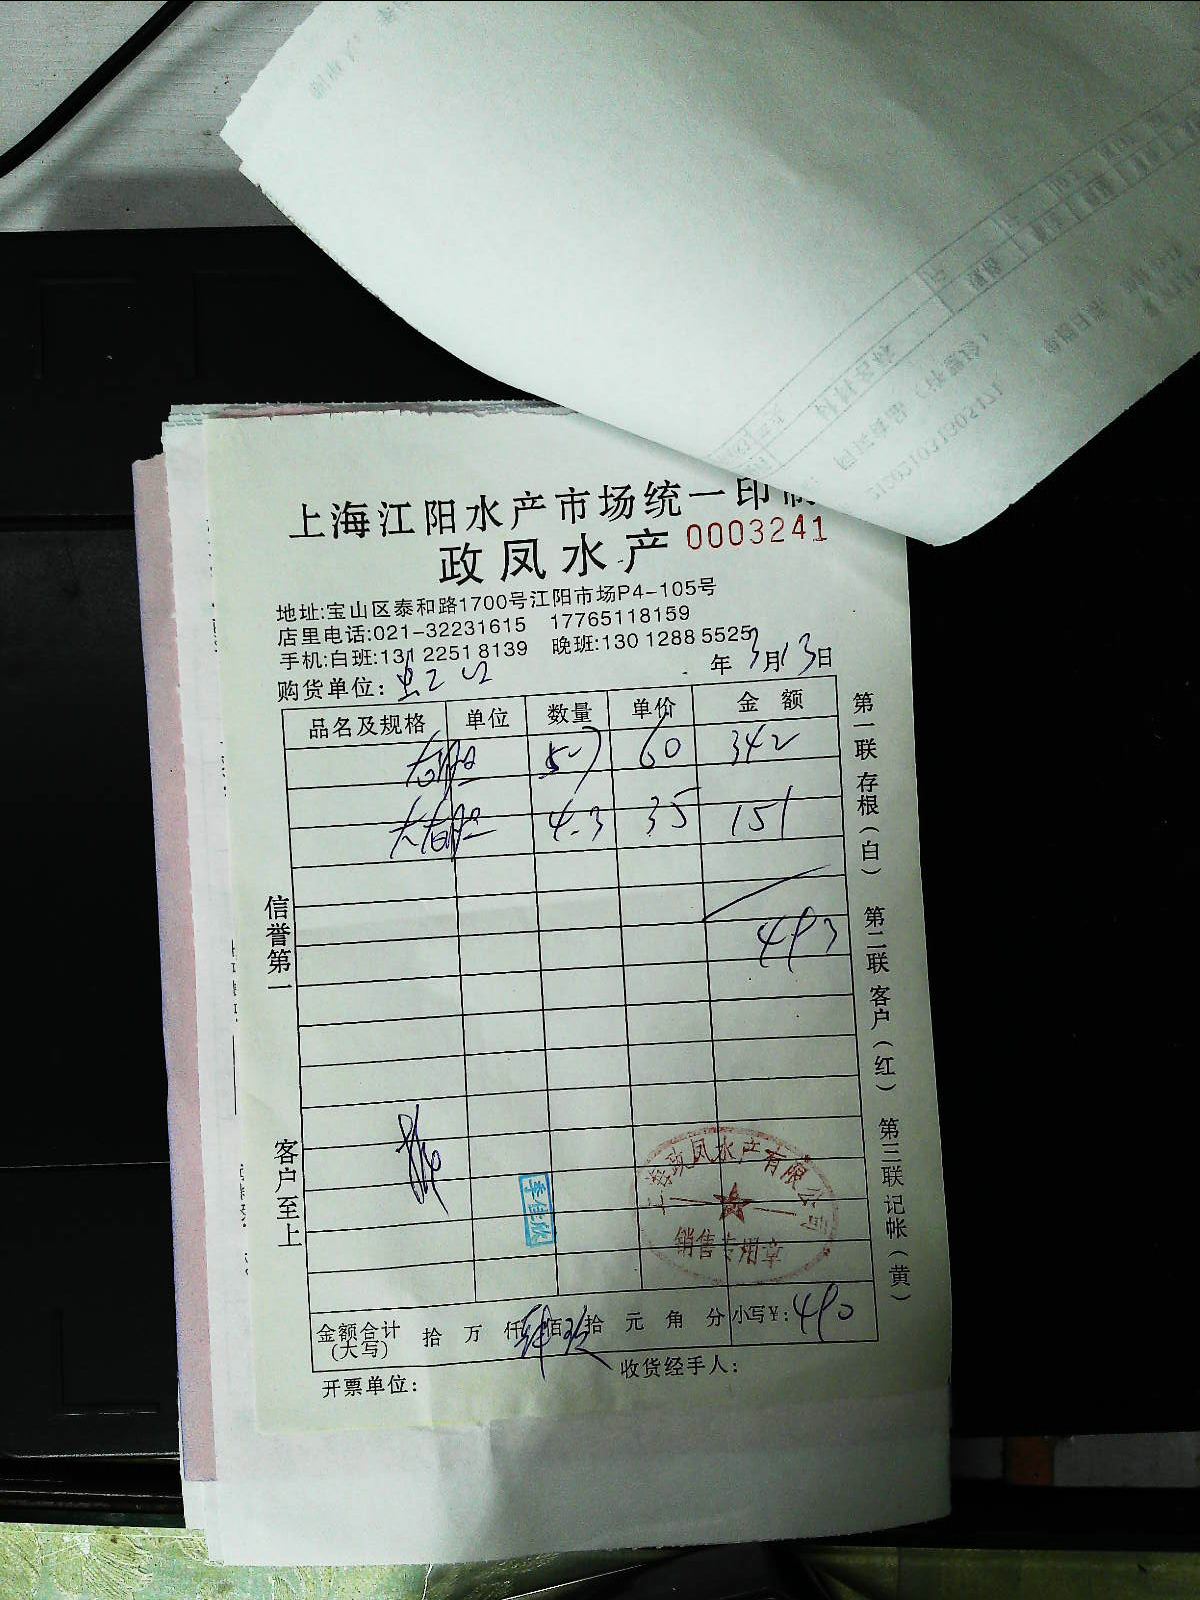 上海江阳水产市场统一印制
政凤水产 0003241
地址:宝山区泰和路1700号江阳市场P4-105号
店里电话:021-32231615 17765118159
手机:白班:131 2251 8139 晚班:130 1288 5525
购货单位: 年3月13日
品名及规格 单位 数量 单价 金额
5.7 60 342
4.3 35 151
493
信誉第一
客户至上
第一联存根(白) 第二联客户(红) 第三联记帐(黄)
李佳欣
上海政凤水产有限公司
销售专用章
金额合计(大写) 拾 万 仟 肆 佰 玖 拾 元 角 分 小写¥: 490
开票单位: 收货经手人: